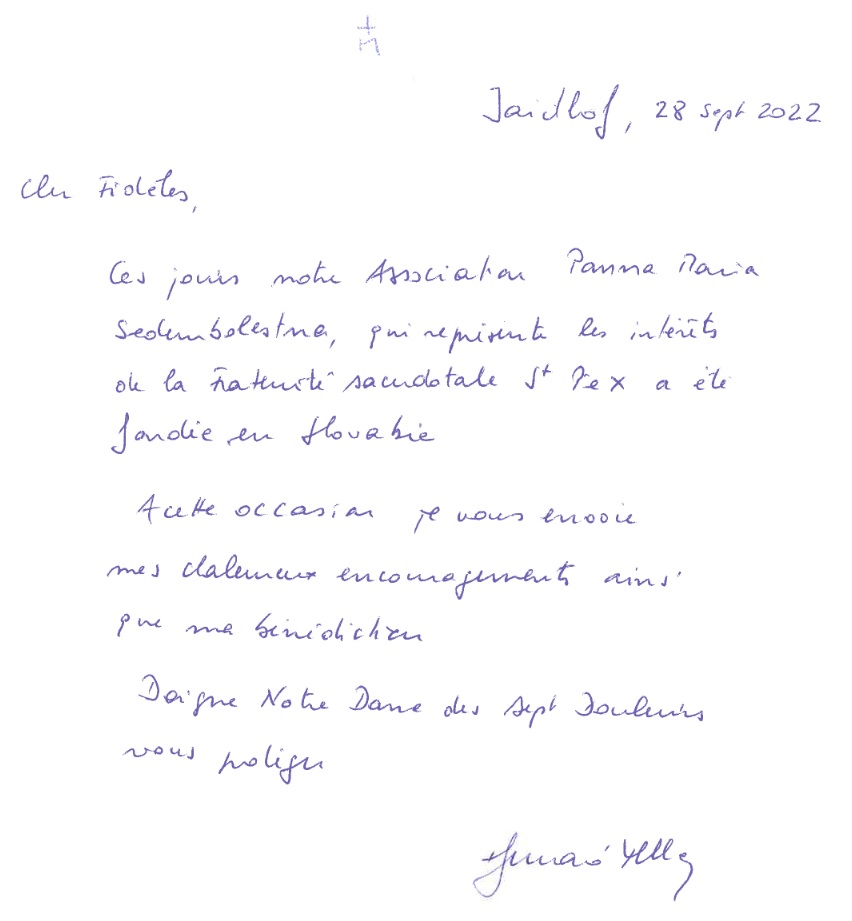 +
M
Jaidhof, 28 sept 2022
Cher Fidèles,
Ces jours notre Association Panna Maria
Sedembolestna, qui représente les intérêts
de la Fraternité sacerdotale St Pie X a été
fondée en Slovakie
A cette occasion je vous envoie
mes chaleureux encouragements ainsi
que ma bénédiction
Daigne Notre Dame des Sept Douleurs
vous protéger